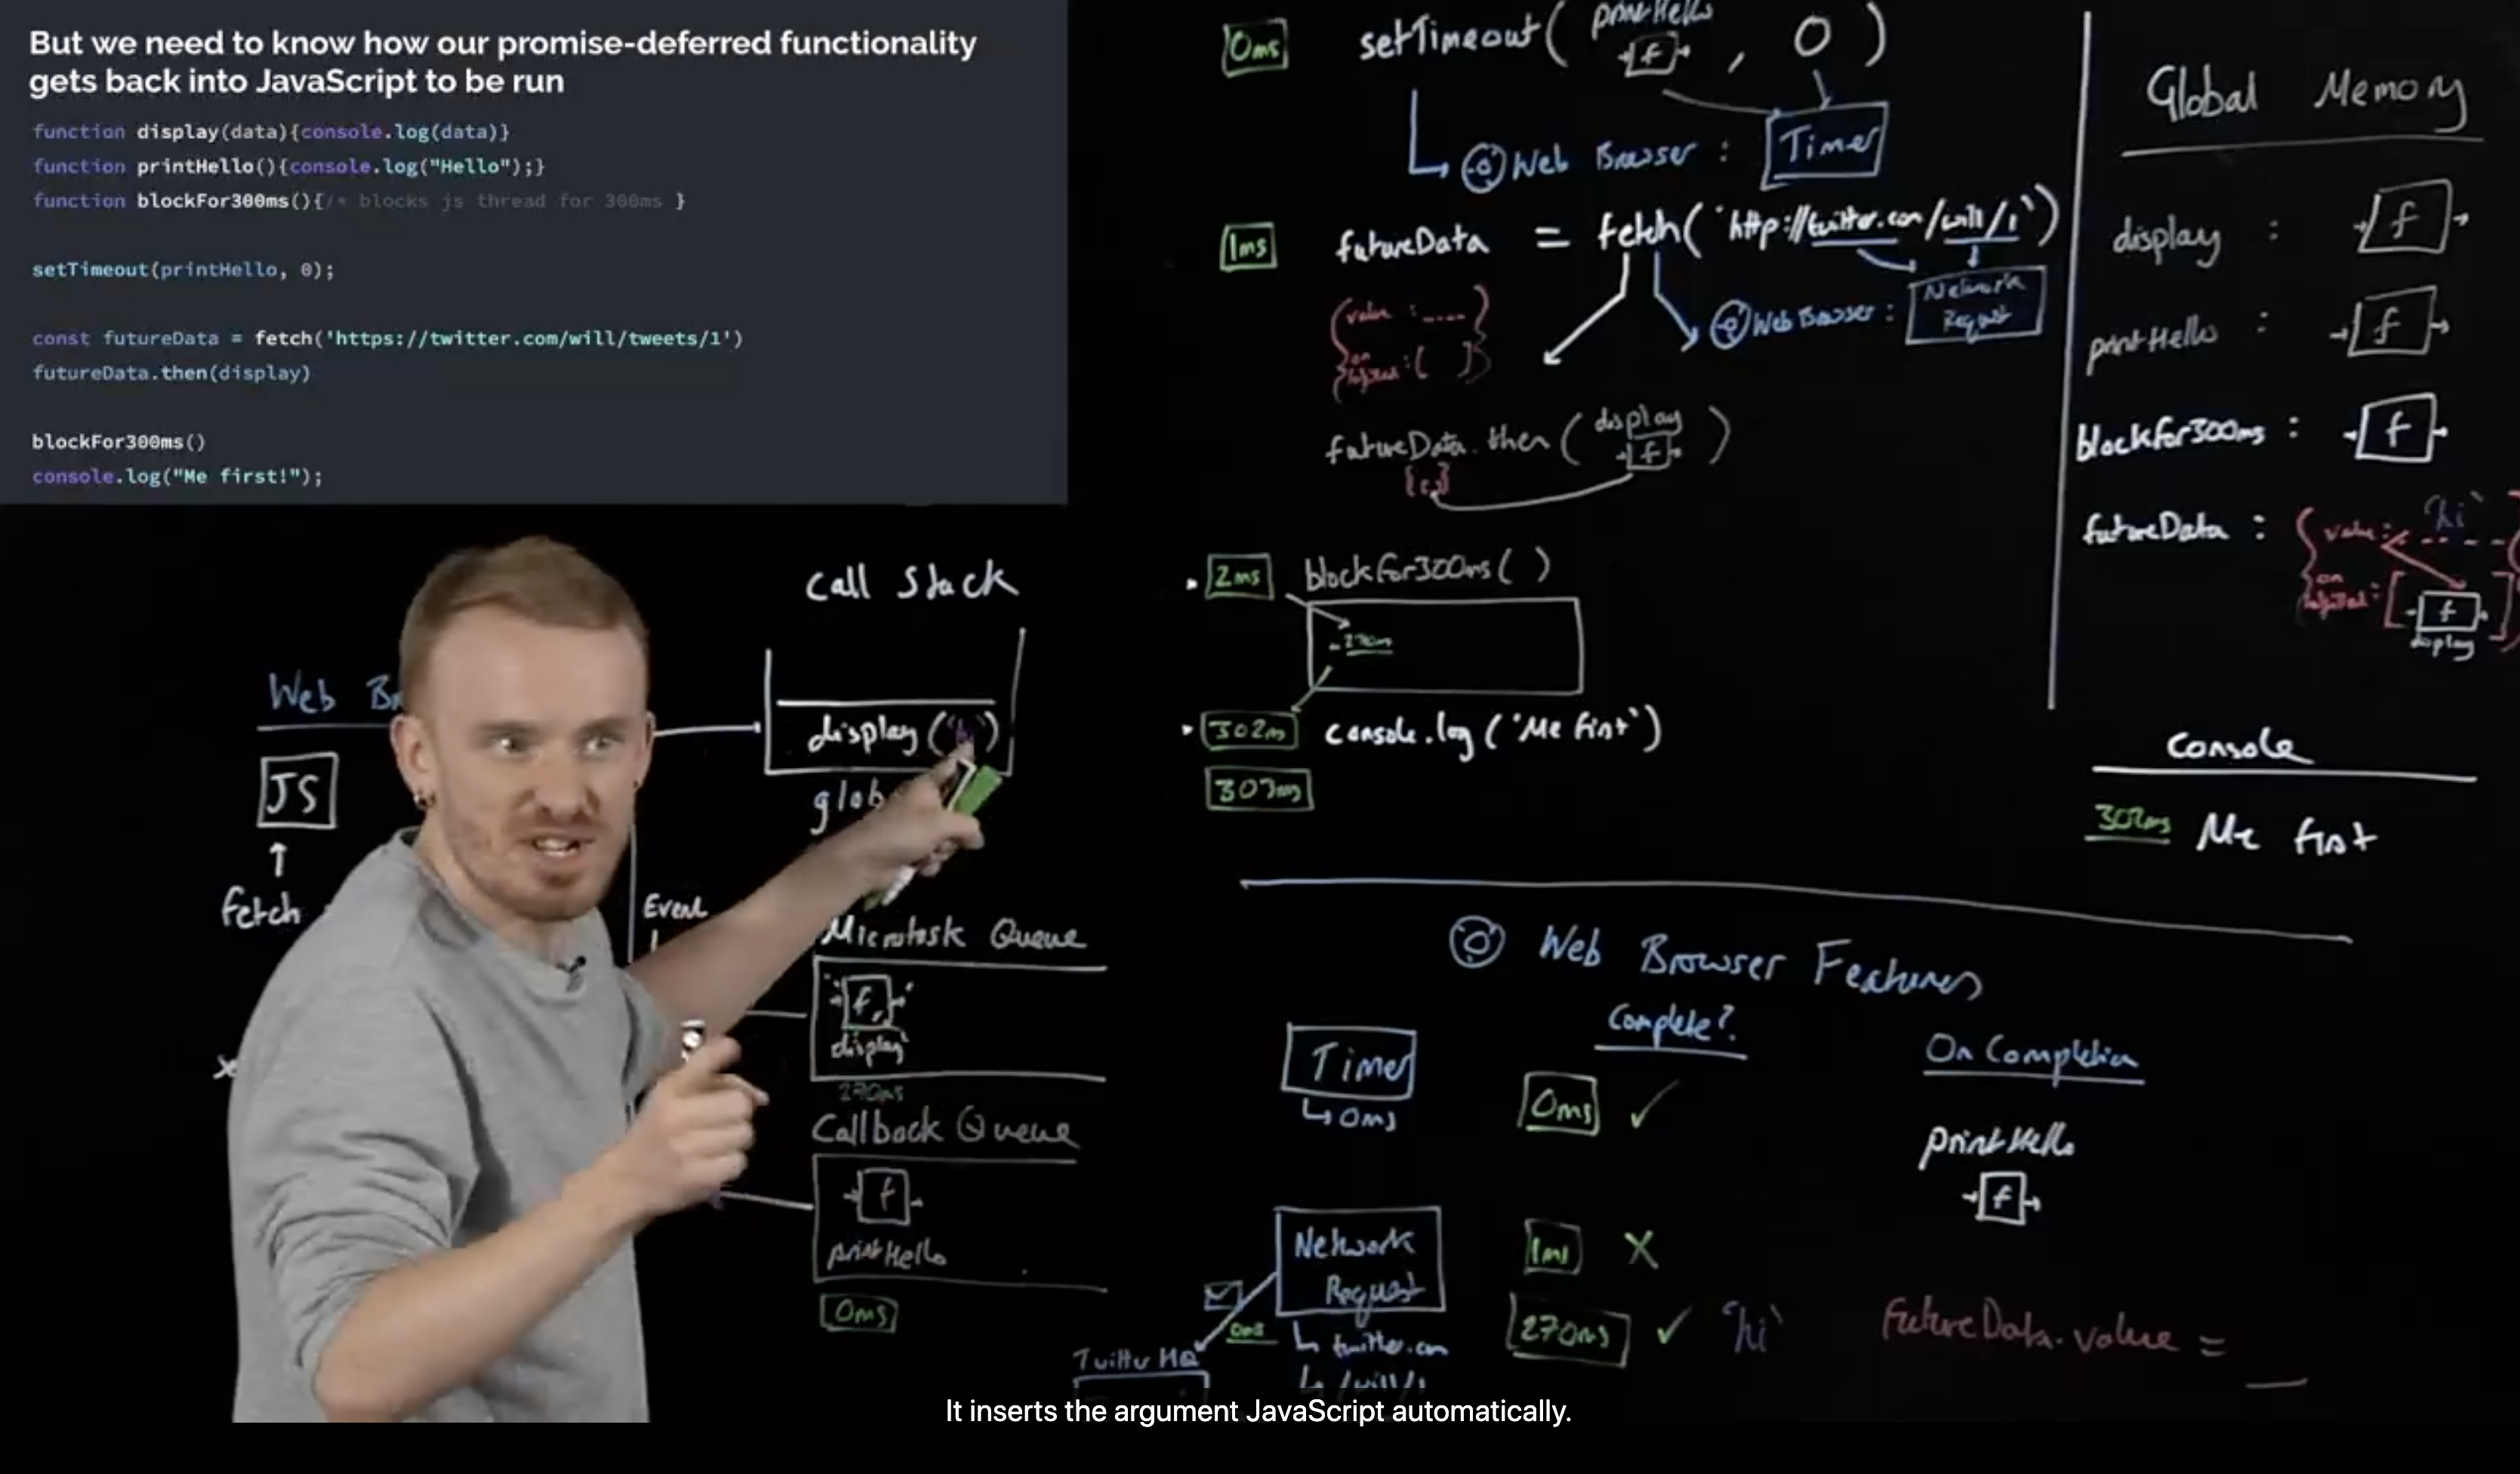 But we need to know how our promise-deferred functionality
gets back into JavaScript to be run
function display(data){console.log(data)}
function printHello(){console.log("Hello");}
function blockFor300ms(){/* blocks js thread for 300ms }
setTimeout(printHello, 0);
const futureData = fetch('https://twitter.com/will/tweets/1')
futureData.then(display)
blockFor300ms()
console.log("Me first!");
0ms setTimeout( printHello f , 0 )
Web Browser : Timer
1ms futureData = fetch('http://twitter.com/will/1')
value :
Web Browser : Network Request
futureData.then( display f )
2ms blockfor300ms( )
270ms
302ms console.log('Me first')
303ms
Global Memory
display : f
printHello : f
blockfor300ms : f
futureData : value: 'hi'
f
display
Console
302ms Me first
Call Stack
Web
JS
fetch
display('hi')
glob
Event
Microtask Queue
f
display
270ms
Callback Queue
f
printHello
0ms
Web Browser Features
Complete?
On Completion
Timer
0ms
0ms ✓
printHello
f
Network
Request
1ms X
270ms ✓ 'hi'
futureData.value =
0ms
twitter.com
/will/1
Twitter HQ
It inserts the argument JavaScript automatically.